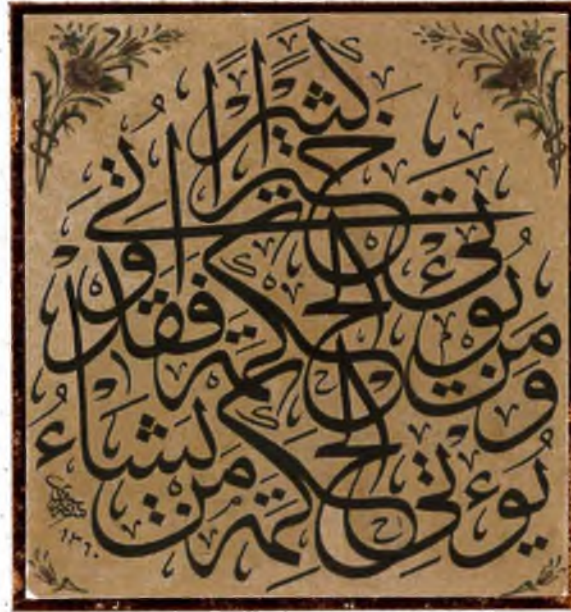 يؤتي الحكمة من يشاء
ومن يؤتى الحكمة فقد اوتى
خيرا كثيرا
١٣٦٠